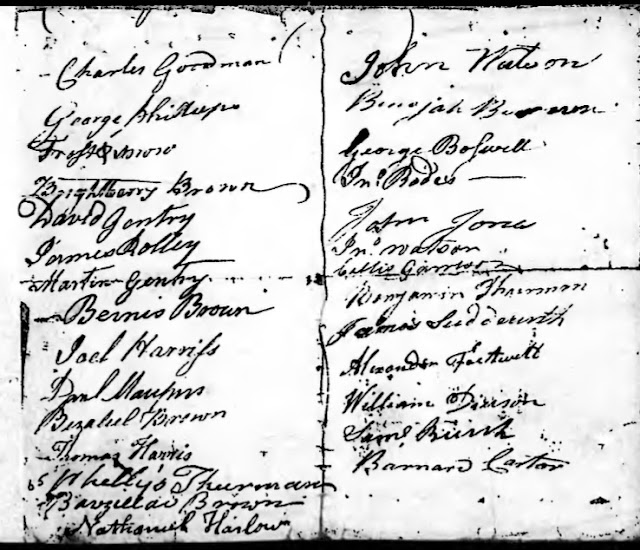 Charles Goodman
George Phillips
Frost & Snow
Brightberry Brown
David Gentry
James Rolley
Martin Gentry
Bernis Brown
Joel Harriss
Danl Maupins
Bezaleel Brown
Thomas Harris
Phelly's Thurman
Bavzillai Brown
Nathaniel Harlow
John Watson
Benajah
George Boswell
Jno. Rodes
John Jones
Jno. Watson
Benjamin Thurman
James Sudderth
Alexander
William
Saml Burch
Barnard Carter